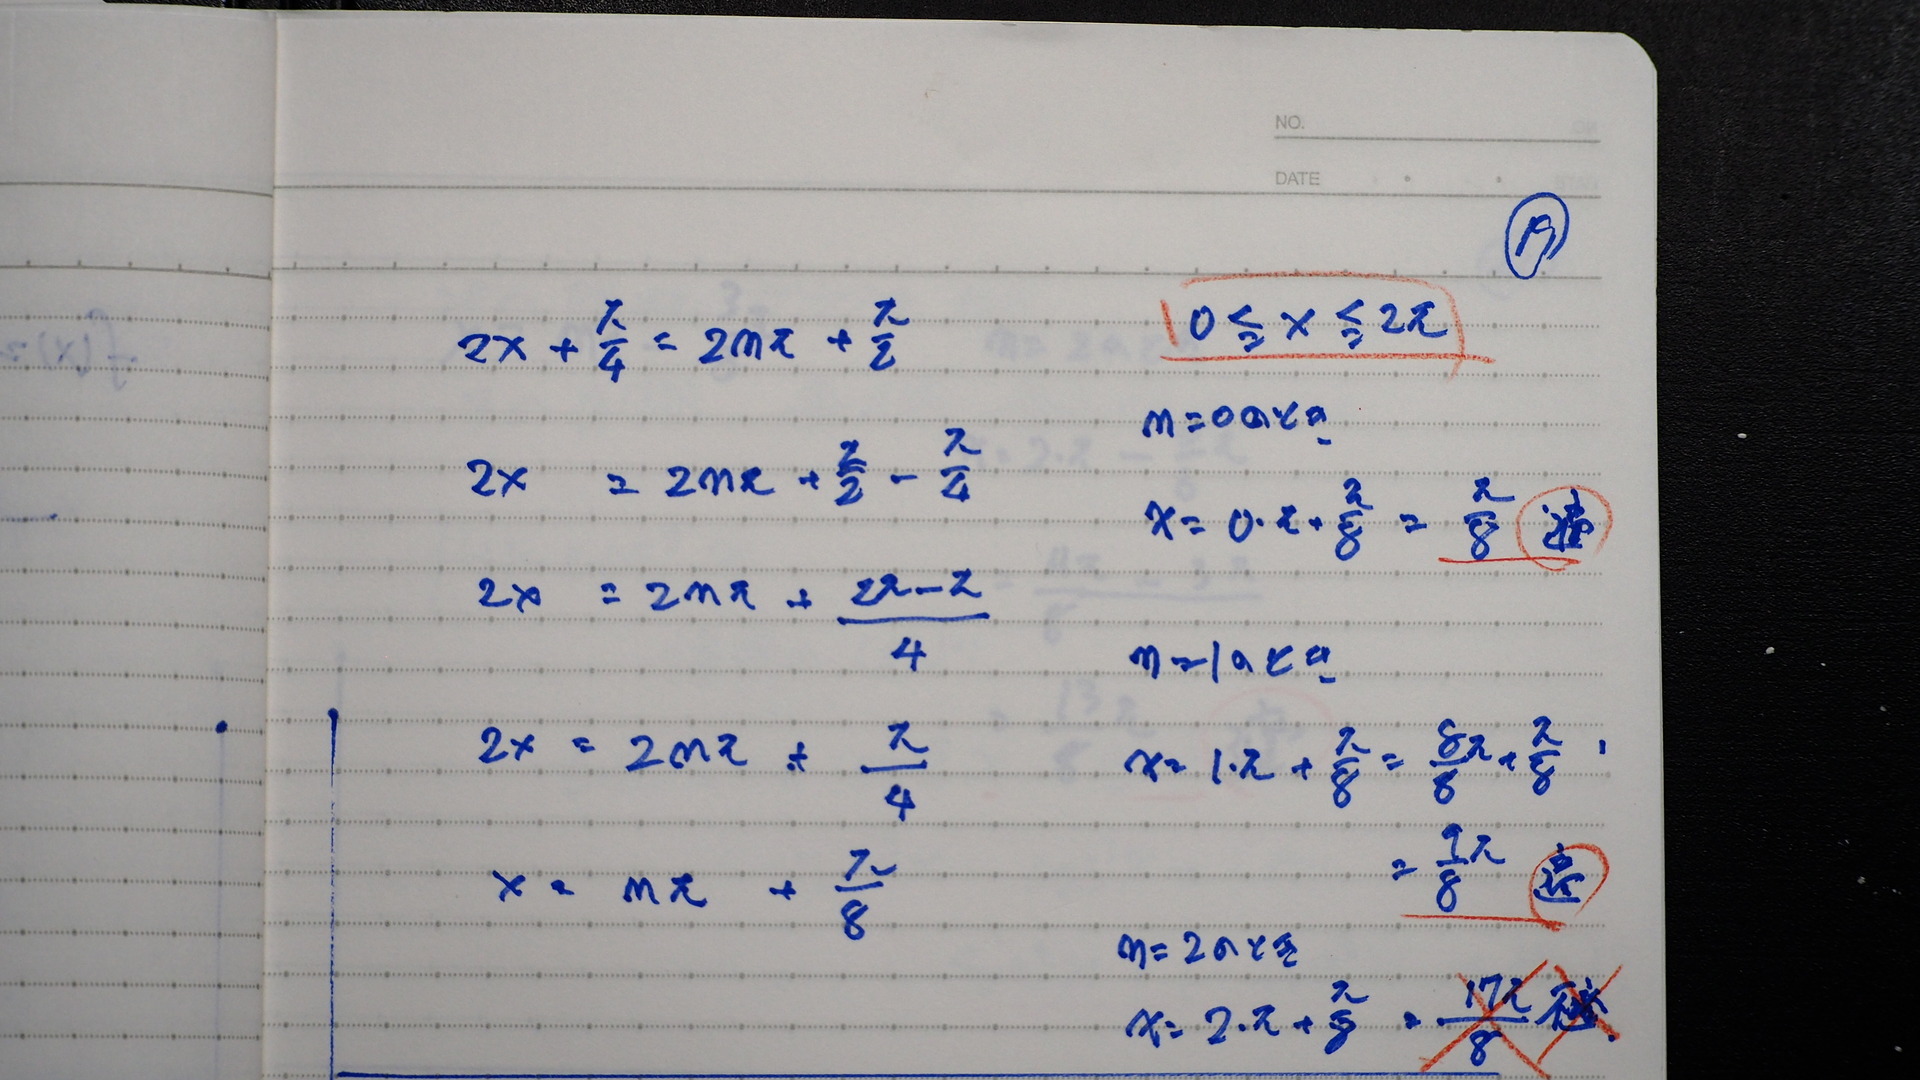 NO.
DATE
2x + π/4 = 2nπ + π/2
2x = 2nπ + π/2 - π/4
2x = 2nπ + (2π-π)/4
2x = 2nπ + π/4
x = nπ + π/8
0 ≦ x ≦ 2π
n=0のとき
x = 0・π + π/8 = π/8 適
n=1のとき
x = 1・π + π/8 = 8π/8 + π/8
= 9π/8 適
n=2のとき
x = 2・π + π/8 = 17π/8 不適